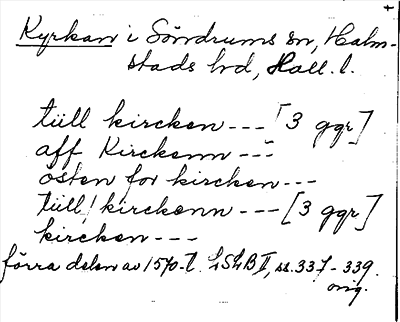 Kyrkan i Söndrums sn, Halm-
stads hd, Hall. l.
tüll kircken --- [3 ggr]
aff Kirckenn ---
østen for kircken ---
tüll kirckenn --- [3 ggr]
kircken ---
förra delen av 1570-t. LSLB II, ss. 337-339.
orig.